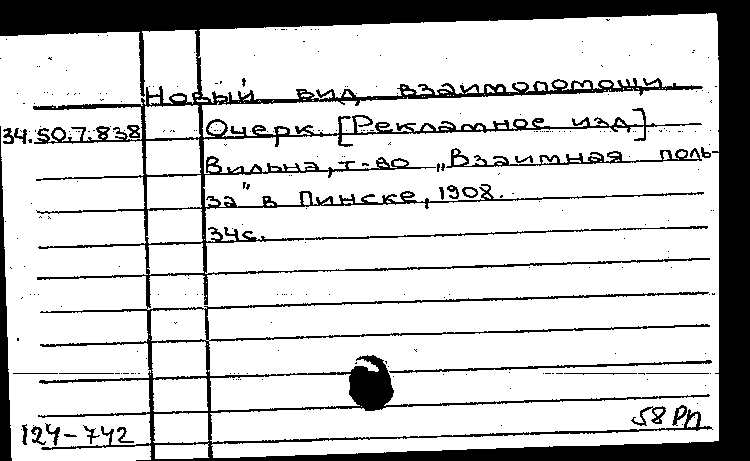 Новый вид взаимопомощи.
34.50.7.838 Очерк. [Рекламное изд.]
Вильна, т-во „Взаимная поль-
за" в Пинске, 1908.
34с.
124-742 58 РП